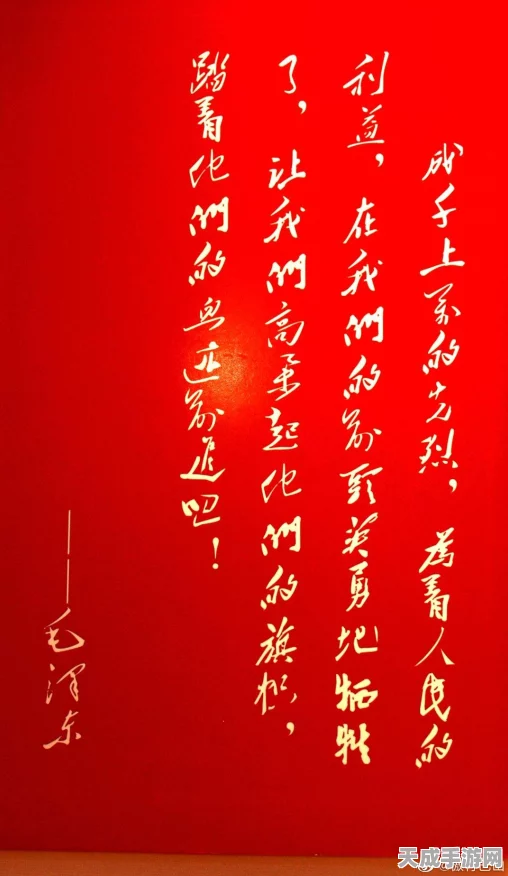 成千上萬的先烈，為着人民的
利益，在我們的前頭英勇地牺牲
了，让我們高举起他們的旗帜，
踏着他們的血迹前進吧！
——毛澤东
天成手游网